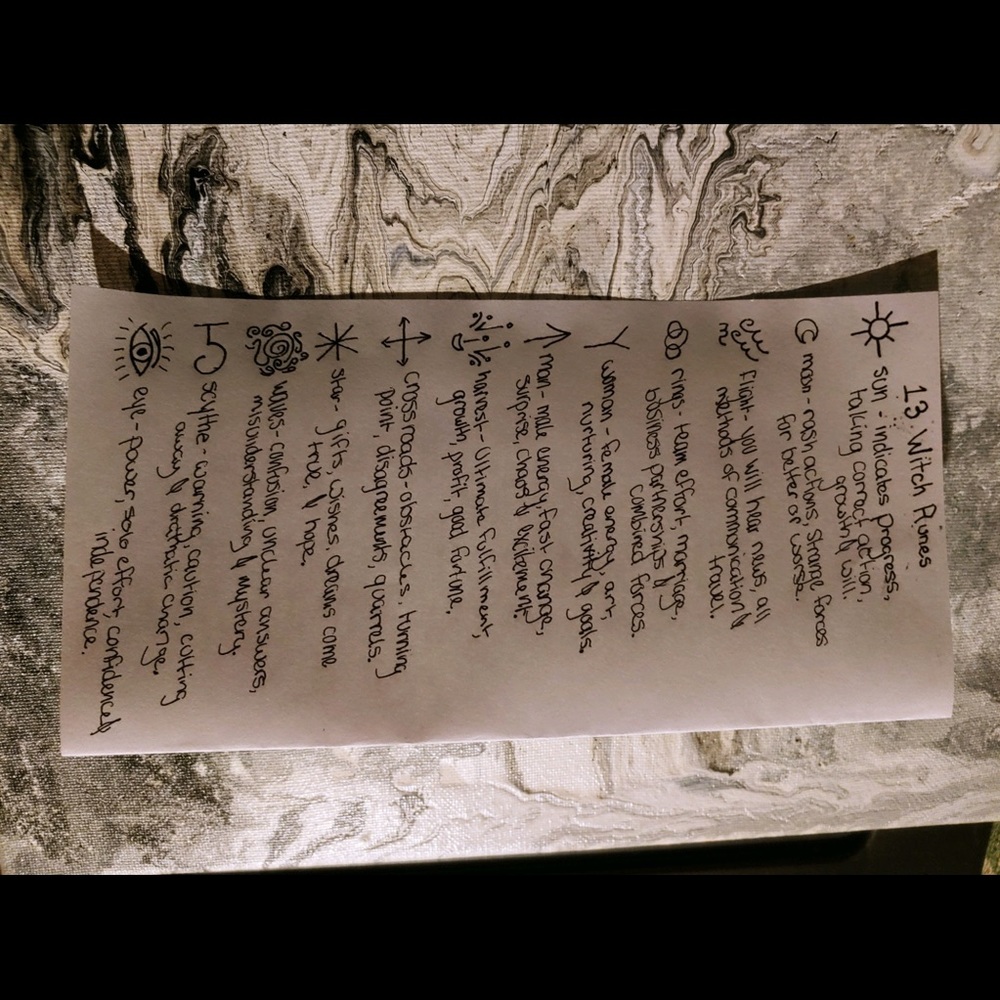 13 Witch Runes
sun - indicates progress,
taking correct action,
growth & will.
moon - rash actions, strange forces
for better or worse.
flight - you will hear news, all
methods of communication &
travel.
rings - team effort, marriage,
business partnerships &
combined forces.
woman - female energy, art,
nurturing, creativity & goals.
man - male energy, fast change,
surprise, chaos & excitement.
harvest - Ultimate fulfillment,
growth, profit, good fortune.
crossroads - obstacles, turning
point, disagreements, quarrels.
star - gifts, wishes, dreams come
true, & hope.
waves - confusion, unclear answers,
misunderstanding & mystery.
scythe - warning, caution, cutting
away & drastic change.
eye - power, solo effort, confidence &
independence.